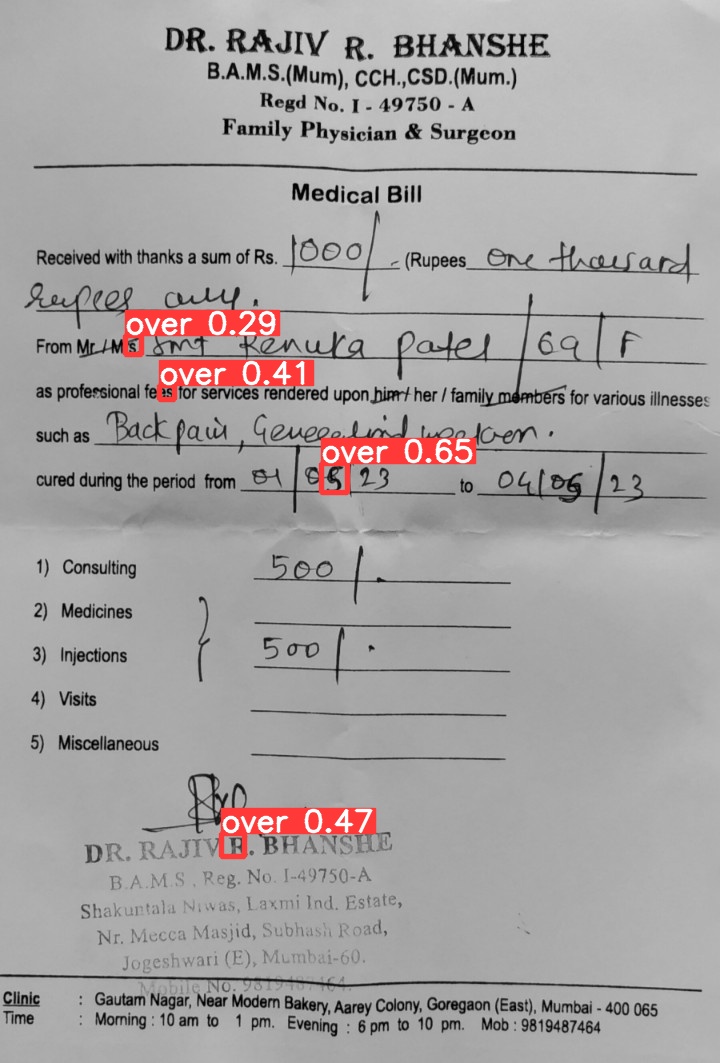 DR. RAJIV R. BHANSHE
B.A.M.S.(Mum), CCH.,CSD.(Mum.)
Regd No. I - 49750 - A
Family Physician & Surgeon
Medical Bill
Received with thanks a sum of Rs. 1000/- (Rupees one thousand
rupees only.
over 0.29
From Mr./Ms Smt Renuka Patel / 69 / F
over 0.41
as professional fees for services rendered upon him / her / family members for various illnesses
such as Back pain,
over 0.65
cured during the period from 01/05/23 to 04/05/23
1) Consulting 500/-
2) Medicines
3) Injections 500/-
4) Visits
5) Miscellaneous
over 0.47
DR. RAJIV R. BHANSHE
B.A.M.S., Reg. No. I-49750-A
Shakuntala Niwas, Laxmi Ind. Estate,
Nr. Mecca Masjid, Subhash Road,
Jogeshwari (E), Mumbai-60.
Mobile No. 9819487464.
Clinic : Gautam Nagar, Near Modern Bakery, Aarey Colony, Goregaon (East), Mumbai - 400 065
Time : Morning : 10 am to 1 pm. Evening : 6 pm to 10 pm. Mob : 9819487464